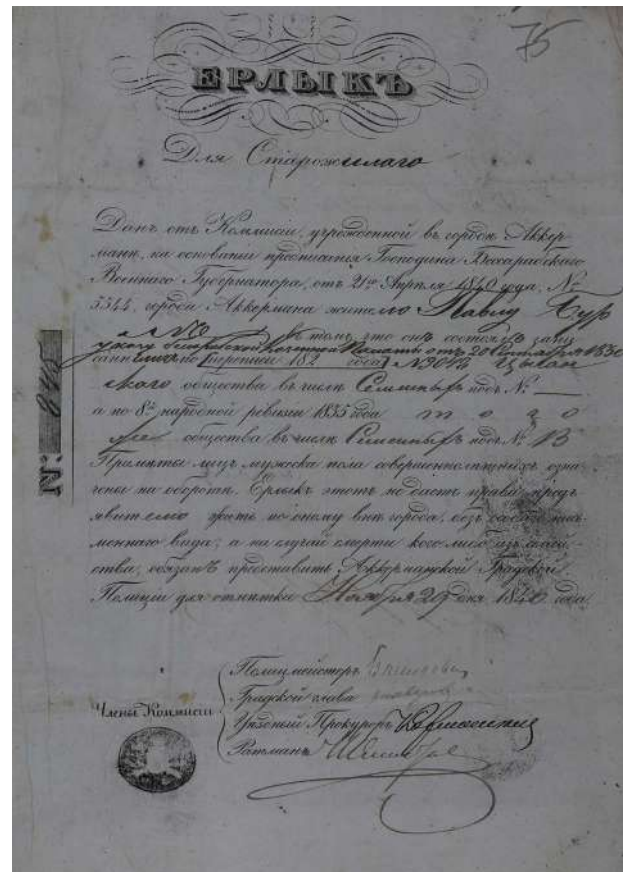 75
ЕРЛЫКЪ
Для Старожилаго
Данъ отъ Коммисіи, учрежденной въ городѣ Аккер-
манѣ, на основаніи предписанія Господина Бессарабскаго
Военнаго Губернатора, отъ 21го Апрѣля 1840 года, №
3344, города Аккермана жителю Павлу Бур
въ томъ, что онъ состоялъ запи
указу Бессарабской Казенной Палаты отъ 20 Сентября 1830
саннымъ по ревизіи 182 года Цыган
скаго общества въ числѣ подъ №. —
а по 8й народной ревизіи 1835 года того
же общества въ числѣ подъ №. 13
Примѣты лицъ мужеска пола совершеннолѣтнихъ озна-
чены на оборотѣ. Ерлыкъ этотъ не даетъ права предъ
явителю жить по оному внѣ города, безъ
менного вида; а на случай смерти кого либо изъ семей-
ства, обязанъ представить Аккерманской Градской
Полиціи для отмѣтки Ноября 29 дня 1840 года
№:
Члены Коммисіи
Полицмейстеръ
Градской глава
Уѣздный Прокуроръ
Ратманъ